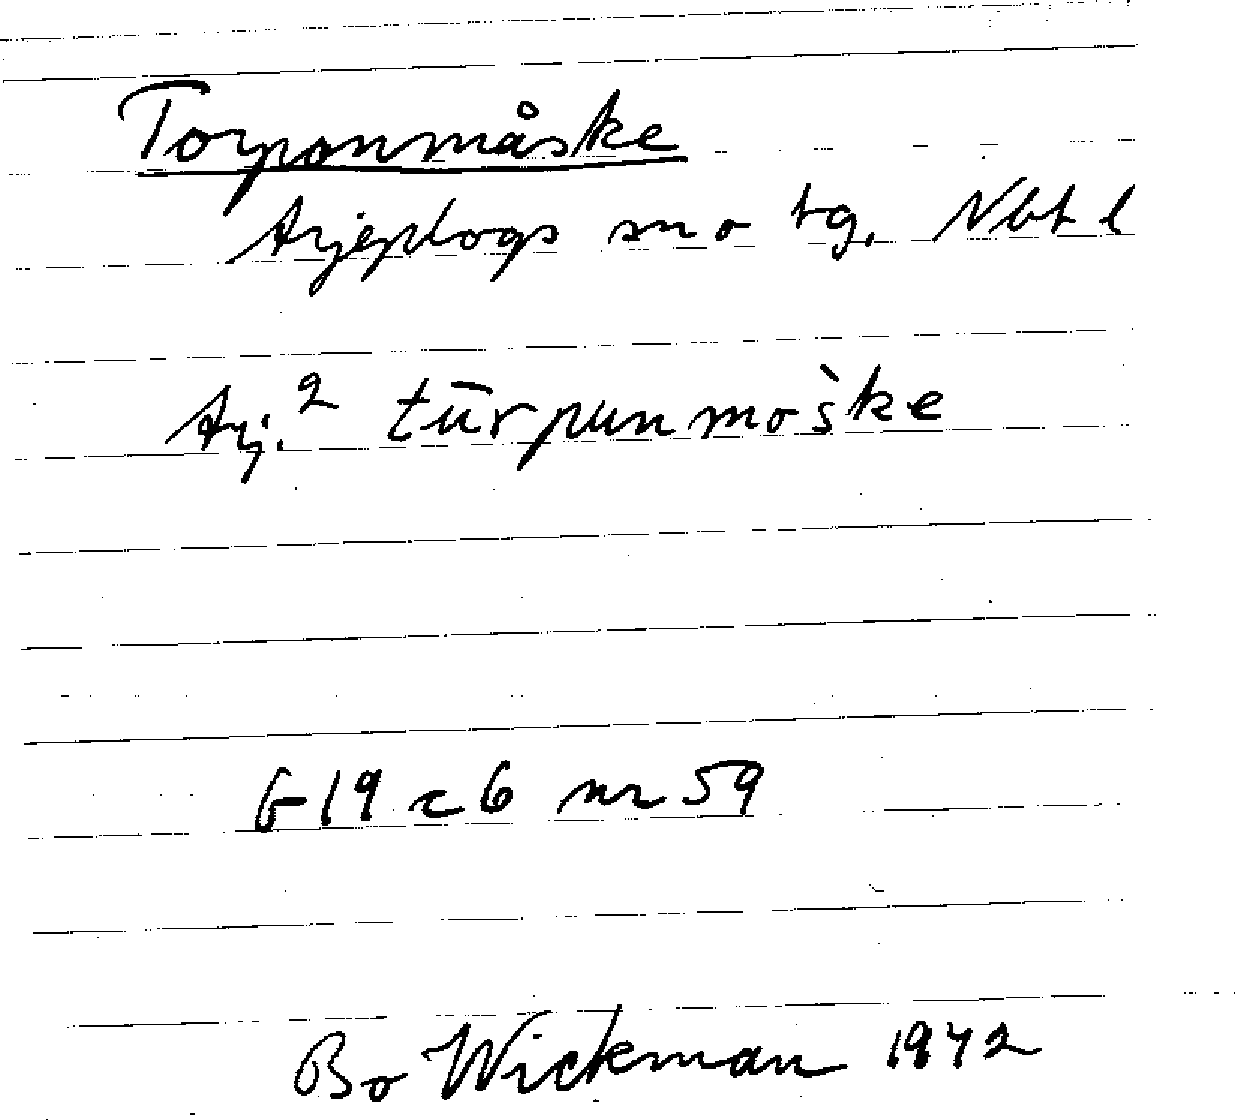 Torponmåske
Arjeplogs sn o tg, Nbt l
Arj.² tūrpunmoške
G 19 c 6 nr 59
Bo Wickman 1942